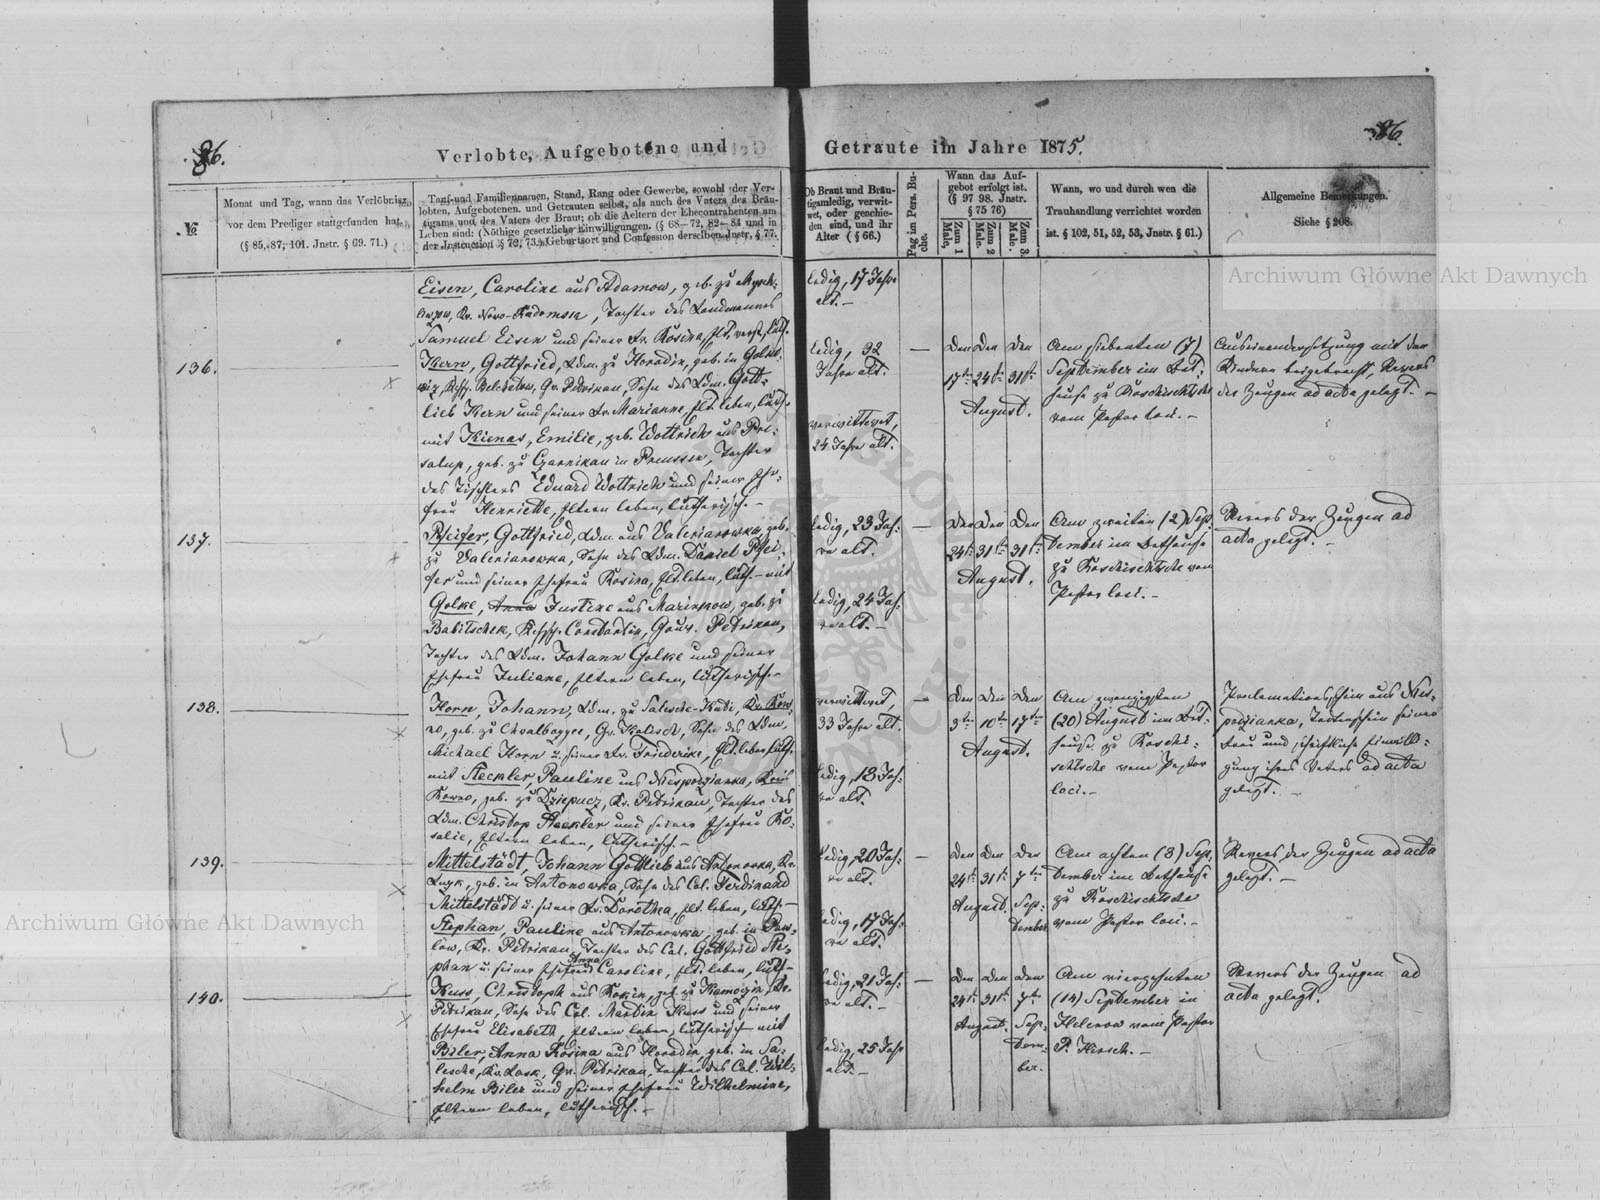 86.
86.
Verlobte, Aufgebotene und
Getraute im Jahre 1875.
№
Monat und Tag, wann das Verlöbniss
vor dem Prediger stattgefunden hat.
(§ 85, 87, 101. Jnstr. § 69. 71.)
Tauf-und Familiennamen, Stand, Rang oder Gewerbe, sowohl der Ver-
lobten, Aufgebotenen und Getrauten selbst, als auch des Vaters des Bräu-
tigams und des Vaters der Braut; ob die Aeltern der Ehecontrahenten am
Leben sind: (Nöthige gesetzliche Einwilligungen. (§ 68—72, 82—84 und in
der Jnstruction § 72, 73.) Geburtsort und Confession derselben Jnstr. § 77.
Ob Braut und Bräu-
tigam ledig, verwit-
wet, oder geschie-
den sind, und ihr
Alter (§ 66.)
Pag im Pers. Bu-
che.
Wann das Auf-
gebot erfolgt ist.
(§ 97 98. Jnstr.
§ 75 76)
Zum 1 Male.
Zum 2 Male.
Zum 3 Male.
Wann, wo und durch wen die
Trauhandlung verrichtet worden
ist. § 102, 51, 52, 53, Jnstr. § 61.)
Allgemeine Bemerkungen.
Siehe § 208.
Eisen, Caroline aus Adamow, geb. zu
Kr. Novo-Radomsk, Tochter des Landmannes
Samuel Eisen und seiner Fr. Rosina,
ledig, 17 Jahre
alt. —
136.
Kern, Gottfried, Ldm. zu Horodin, geb. in
Belchatow, Gv. Petrikau, Sohn des Ldm. Gott-
lieb Kern und seiner Fr. Marianne, Elt. leben, luth.
mit Kienas, Emilie, geb. Wottrich aus
geb. zu Czarnikau in Preussen, Tochter
des Tischlers Eduard Wottrich und seiner Ehe-
frau Henriette, Eltern leben, lutherisch. —
ledig, 32
Jahre alt.
verwittwet,
24 Jahre alt.
Den Den Den
17ten 24ten 31ten
August.
Am siebenten (7)
September im Bet-
hause zu Roschischtsche
vom Pastor loci. —
Auseinandersetzung mit den
Kindern beigebracht, Revers
der Zeugen ad acta gelegt. —
137.
Pfeifer, Gottfried, Ldm. aus Valerianowka, geb.
zu Valerianowka, Sohn des Ldm. Daniel Pfei-
fer und seiner Ehefrau Rosina, Elt. leben, luth. — mit
Golke, Justine aus Marinkow, geb. zu
Babitschek, Constantin, Gouv. Petrikau,
Tochter des Ldm. Johann Golke und seiner
Ehefrau Juliane, Eltern leben, lutherisch. —
ledig, 23 Jah-
re alt.
ledig, 24 Jah-
re alt. —
Den Den Den
24ten 31ten 31ten
August.
Am zweiten (2) Sep-
tember im Bethause
zu Roschischtsche vom
Pastor loci. —
Revers der Zeugen ad
acta gelegt. —
138.
Horn, Johann, Ldm. zu
geb. zu Gv. Kalisch, Sohn des Ldm.
Michael Horn u. seiner Fr. Friderike, Elt. leben, luth.
mit Steckler, Pauline aus Niespodzianka, Kreis
Kowno, geb. zu Gv. Petrikau, Tochter des
Ldm. Christop Steckler und seiner Ehefrau Ro-
salie, Eltern leben, lutherisch. —
verwittwet,
33 Jahre alt.
ledig, 18 Jah-
re alt.
Den Den Den
3ten 10ten 17ten
August.
Am zwanzigsten
(20) August im Bet-
hause zu Roschi-
schtsche vom Pastor
loci. —
Proclamationsschein aus Nies-
podzianka, Todtenschein seiner
Frau und schriftliche Einwilli-
gung ihres Vaters ad acta
gelegt. —
139.
Mittelstädt, Johann Gottlieb aus Antonowka, Kr.
Luzk, geb. in Antonowka, Sohn des Col. Ferdinand
Mittelstädt u. seiner Fr. Dorothea, Elt. leben, luth. —
Stephan, Pauline aus Antonowka, geb. in Paw-
low, Kr. Petrikau, Tochter des Col. Gottfried Ste-
phan u. seiner Ehefrau Anna Caroline, Elt. leben, luth. —
ledig, 20 Jah-
re alt.
ledig, 17 Jah-
re alt.
Den Den Den
24ten 31ten 7ten
August. Sep-
tember
Am achten (8) Sep-
tember im Bethause
zu Roschischtsche
vom Pastor loci. —
Revers der Zeugen ad acta
gelegt. —
140.
Kuss, Christoph aus geb. zu
Petrikau, Sohn des Col. Martin Kuss und seiner
Ehefrau Elisabeth, Eltern leben, lutherisch — mit
Biler, Anna Rosina aus Horodin, geb. in Sa-
lesche, Kr. Lask, Gv. Petrikau, Tochter des Col. Wil-
helm Biler und seiner Ehefrau Wilhelmine,
Eltern leben, lutherisch. —
ledig, 21 Jah-
re alt. —
ledig, 25 Jahr
alt. —
Den Den Den
24ten 31ten 7ten
August. Sep-
tem-
ber.
Am vierzehnten
(14) September in
vom Pastor
P. Hirsch. —
Revers der Zeugen ad
acta gelegt.
Archiwum Główne Akt Dawnych
Archiwum Główne Akt Dawnych